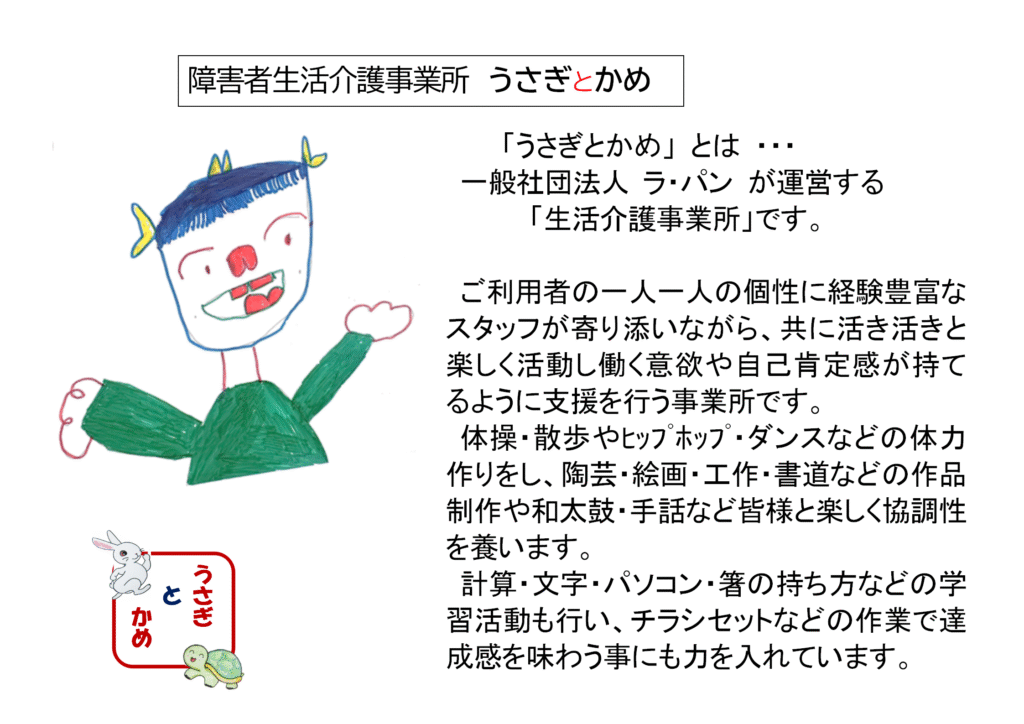 障害者生活介護事業所　うさぎとかめ
「うさぎとかめ」 とは ・・・
一般社団法人 ラ・パン が運営する
「生活介護事業所」です。
ご利用者の一人一人の個性に経験豊富な
スタッフが寄り添いながら、共に活き活きと
楽しく活動し働く意欲や自己肯定感が持て
るように支援を行う事業所です。
体操・散歩やﾋｯﾌﾟﾎｯﾌﾟ・ダンスなどの体力
作りをし、陶芸・絵画・工作・書道などの作品
制作や和太鼓・手話など皆様と楽しく協調性
を養います。
計算・文字・パソコン・箸の持ち方などの学
習活動も行い、チラシセットなどの作業で達
成感を味わう事にも力を入れています。
うさぎ
と
かめ